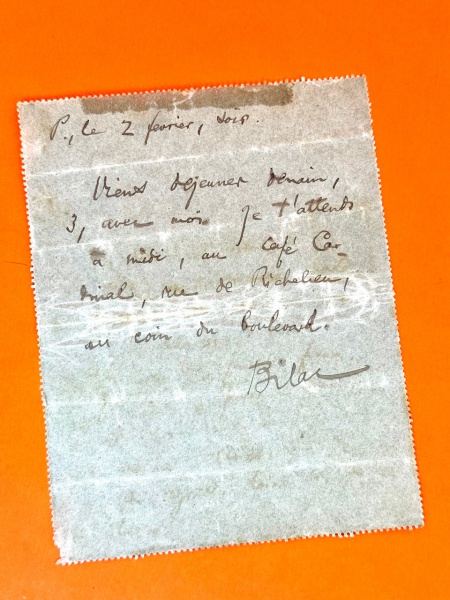 P., le 2 février, soir.
Viens déjeuner demain,
3, avec moi. Je t'attends
à midi, au Café Car-
dinal, rue de Richelieu,
au coin du boulevard.
Bilac